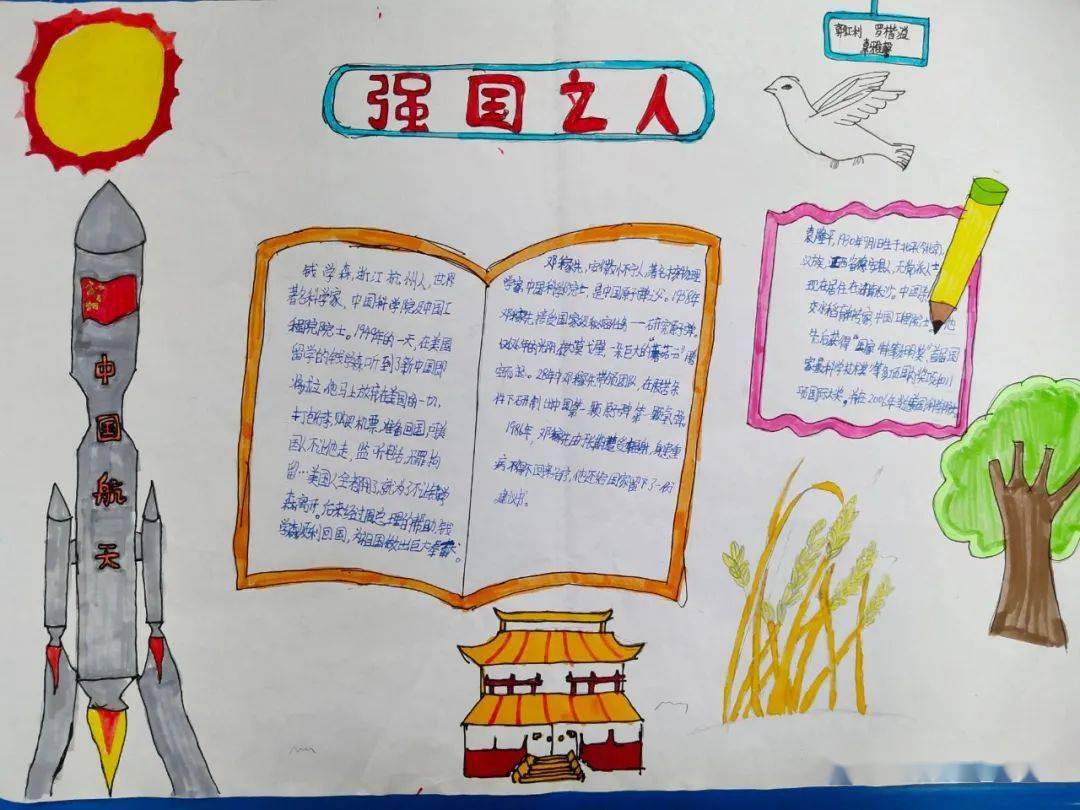 强国之人
郭虹利 罗楷溢
袁雅馨
中国航天
钱学森,浙江杭州人,世界
著名科学家、中国科学院及中国工
程院院士。1949年的一天,在美国
留学的钱学森听到了新中国即
将成立,他马上放弃在美国的一切,
打包行李,购买机票,准备回国。美
国人不让他走,监听电话,无罪拘
留…美国人全都用了,就为了不让钱学
森离开。后来经过周总理的帮助,钱
学森顺利回国,为祖国做出巨大贡献。
邓稼先,安徽怀宁人,著名核物理
学家,中国科学院院士,是中国原子弹之父。1958年
邓稼先接受国家最秘密的任务——研究原子弹。
年的光阴,微漠戈壁一朵巨大的“蘑菇云”腾
空而起。28年中邓稼先带领团队,在艰苦条
件下研制出中国第一颗原子弹、第一颗氢弹。
1986年,邓稼先由于受辐射,身患重
病,不治,他还给国家留下了一份
建议书。
袁隆平,1930年9月1日生于北京(),
汉族,江西省德安县人,无党派人士
现在居住在湖南长沙。中国杂
交水稻育种专家,中国工程院院士。他
先后获得“国家特等发明奖”“首届国
家最科学技术奖”等多项国内奖项和11
项国际大奖。并在2006年当美国科学院